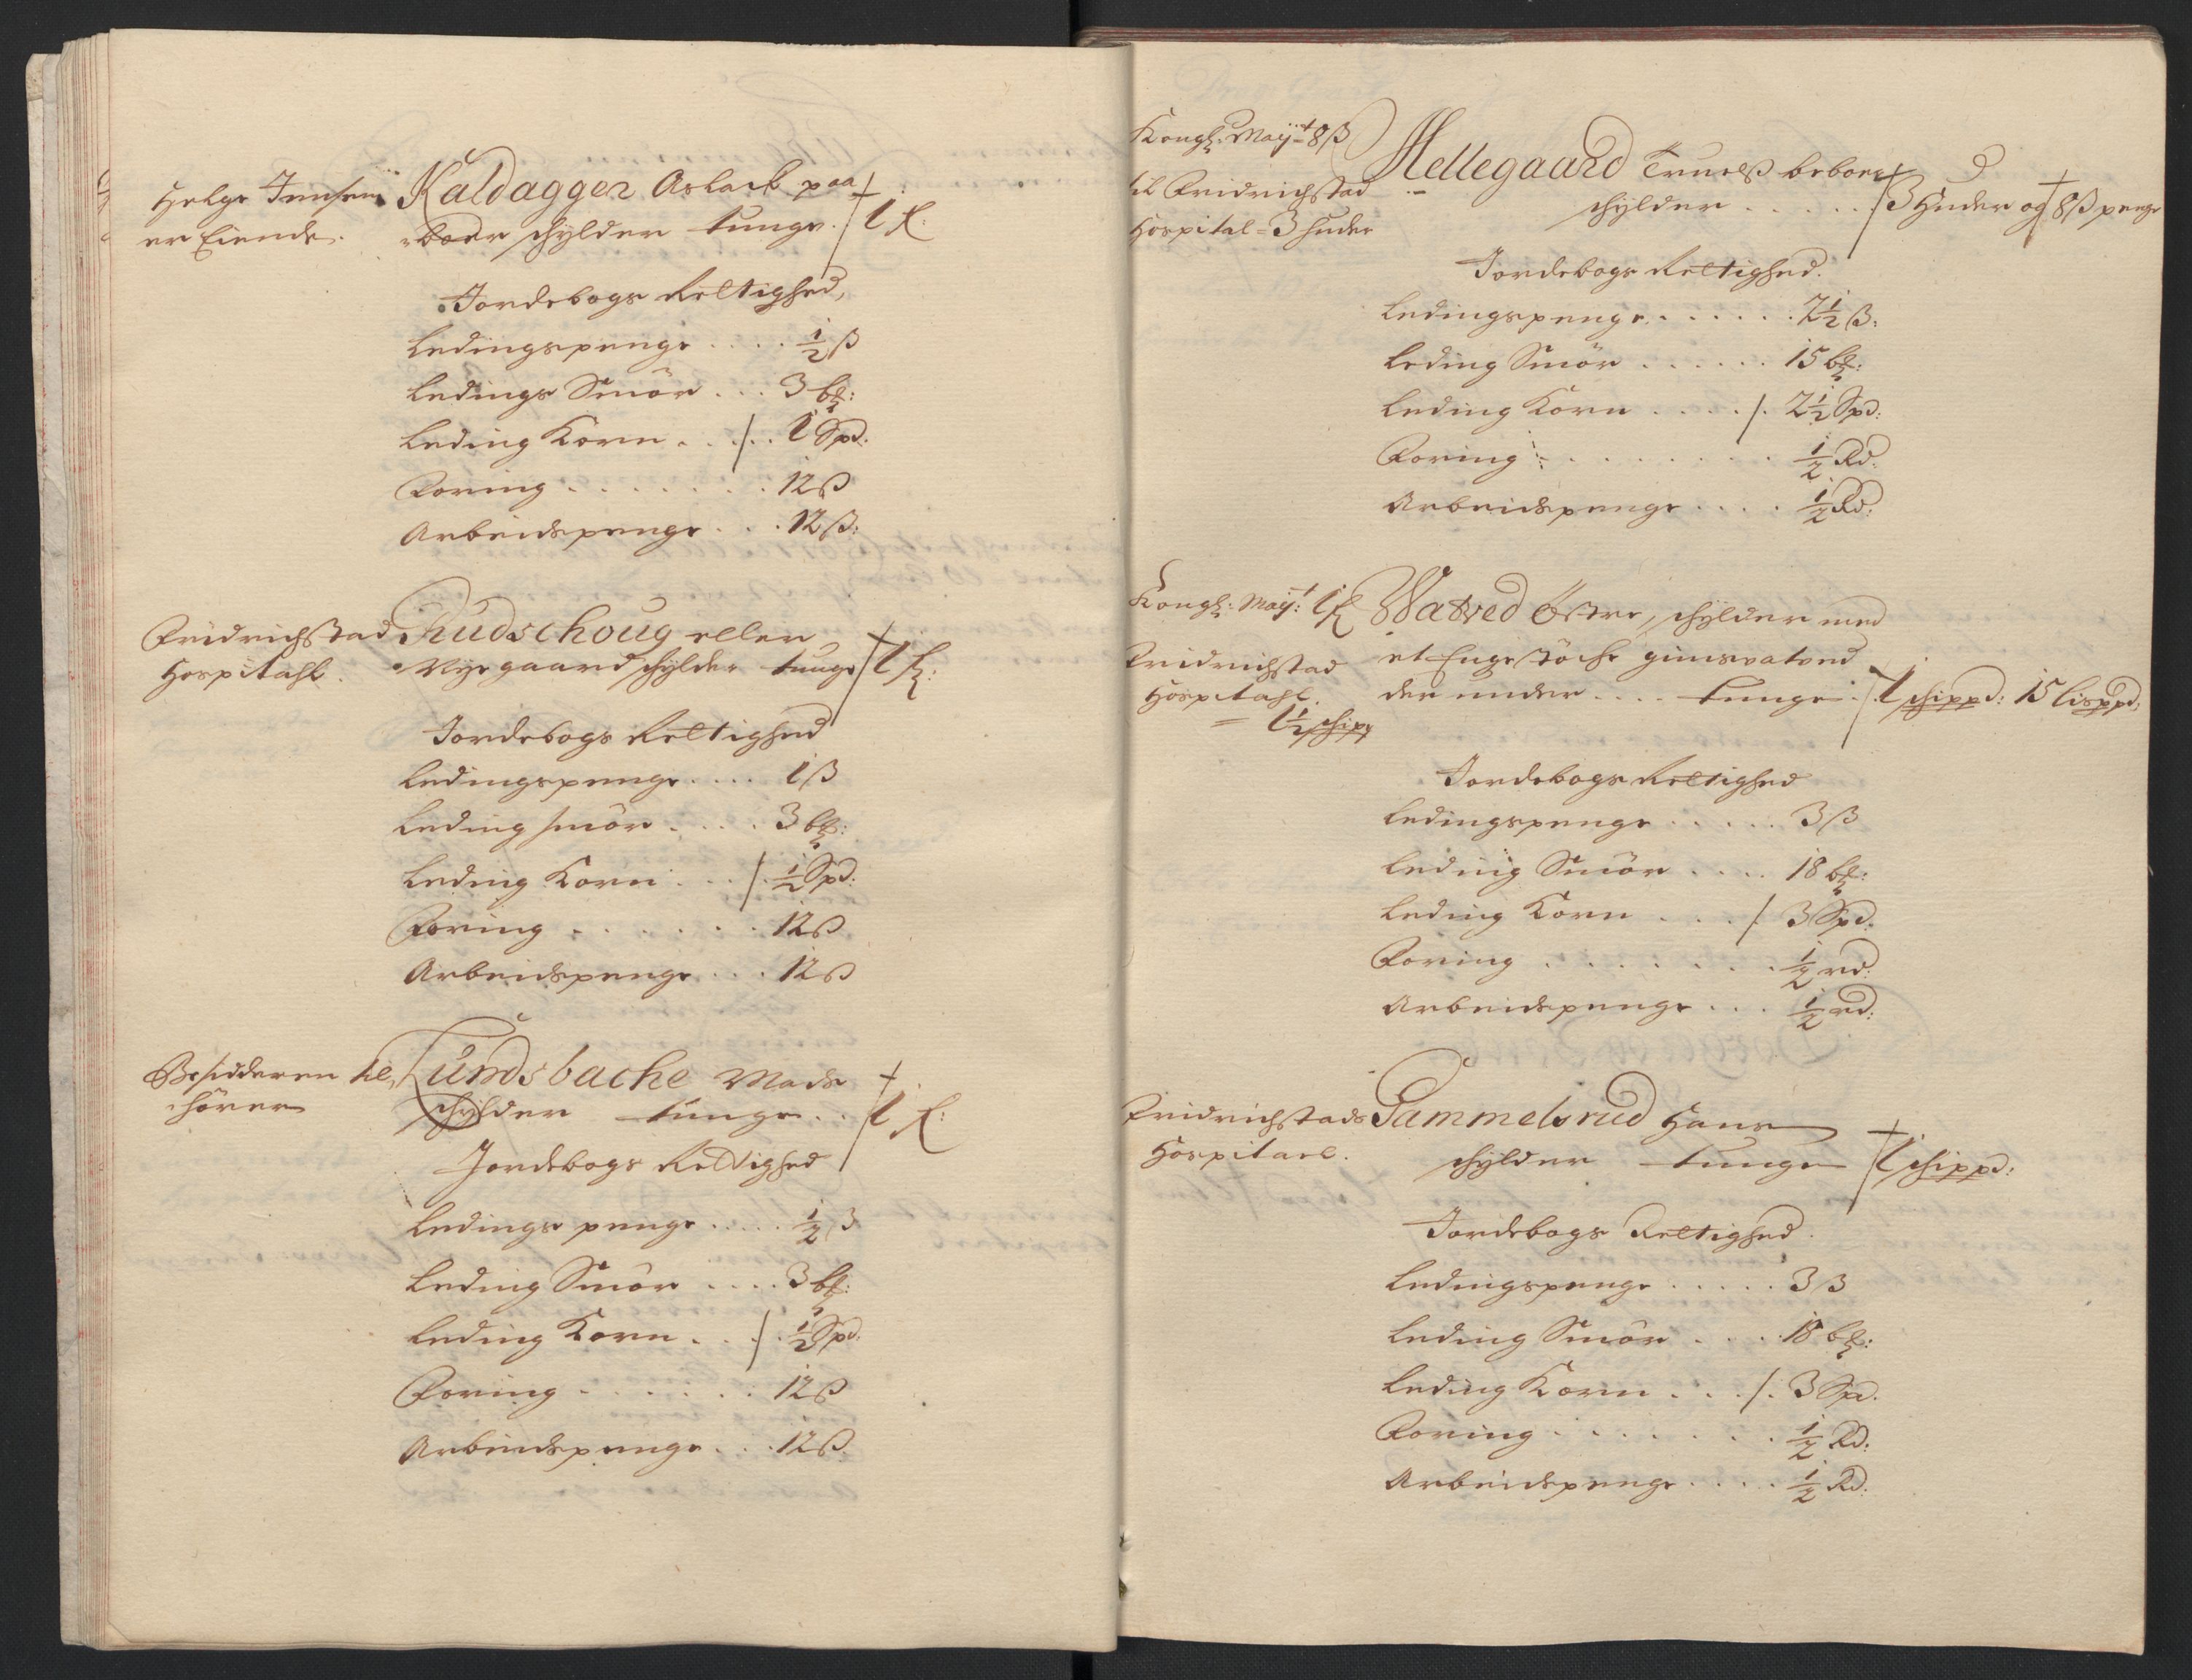 Helge Jensen
er Eiende.
Kaldagger Aslack paa
boer schylder tunge. 1 £:
Jordebogs Rettighed,
Ledingspenge .... ½ ß
Ledings Smör ... 3 b£:
Leding Korn ... /. 1 Spd:
Foring ....... 12 ß
Arbeidspenge ... 12 ß:
Fridrichstad
Hospitahl.
Rudschoug eller
Nyegaard schylder tunge 1 £:
Jordebogs Rettighed
Ledingspenge .... 1 ß
Leding smör .... 3 b£:
Leding Korn ... /. ½ Spd:
Foring ...... 12 ß
Arbeidspenge ... 12 ß
Besidderen til,
hörer
Lundsbache Mads
schylder tunge .. 1 £:
Jordebogs Rettighed
Ledings penge ..... ½ ß
Leding Smör .... 3 b£:
Leding Korn ... /. ½ Spd:
Foring ...... 12 ß
Arbeidspenge ... 12 ß.
Kongl: Mayt 8 ß
til Fridrichstad
Hospital = 3 huder
Hellegaard Truels beboer
schylder ..... 3 Huder og 8 ß penge
Jordebogs Rettighed.
Ledingspenge ...... 7½ ß:
Leding Smör ...... 15 b£:
Leding Korn .... /. 2½ Spd:
Foring ........ ½ Rd:
Arbeidspenge .... ½ Rd:
Kongl: Mayt: 1 £
Fridrichstad
Hospitahl.
= 1½ schip
Watved Östre, schylder med
et Enge töche gimsvatved
der under .... tunge . 1 schippd: 15 lisppd:
Jordebogs Rettighed
Ledingspenge ..... 3 ß
Leding Smör .... 18 b£:
Leding Korn .... /. 3 Spd:
Foring ....... ½ rd:
Arbeidspenge ... ½ rd:
Fridrichstads
Hospitael.
Gammelsrud Hans
schylder tunge 1 schippd:
Jordebogs Rettighed.
Ledingspenge ..... 3 ß
Leding Smör .... 18 b£:
Leding Korn ... /. 3 Spd.
Foring ....... ½ Rd:
Arbeidspenge .... ½ Rd: